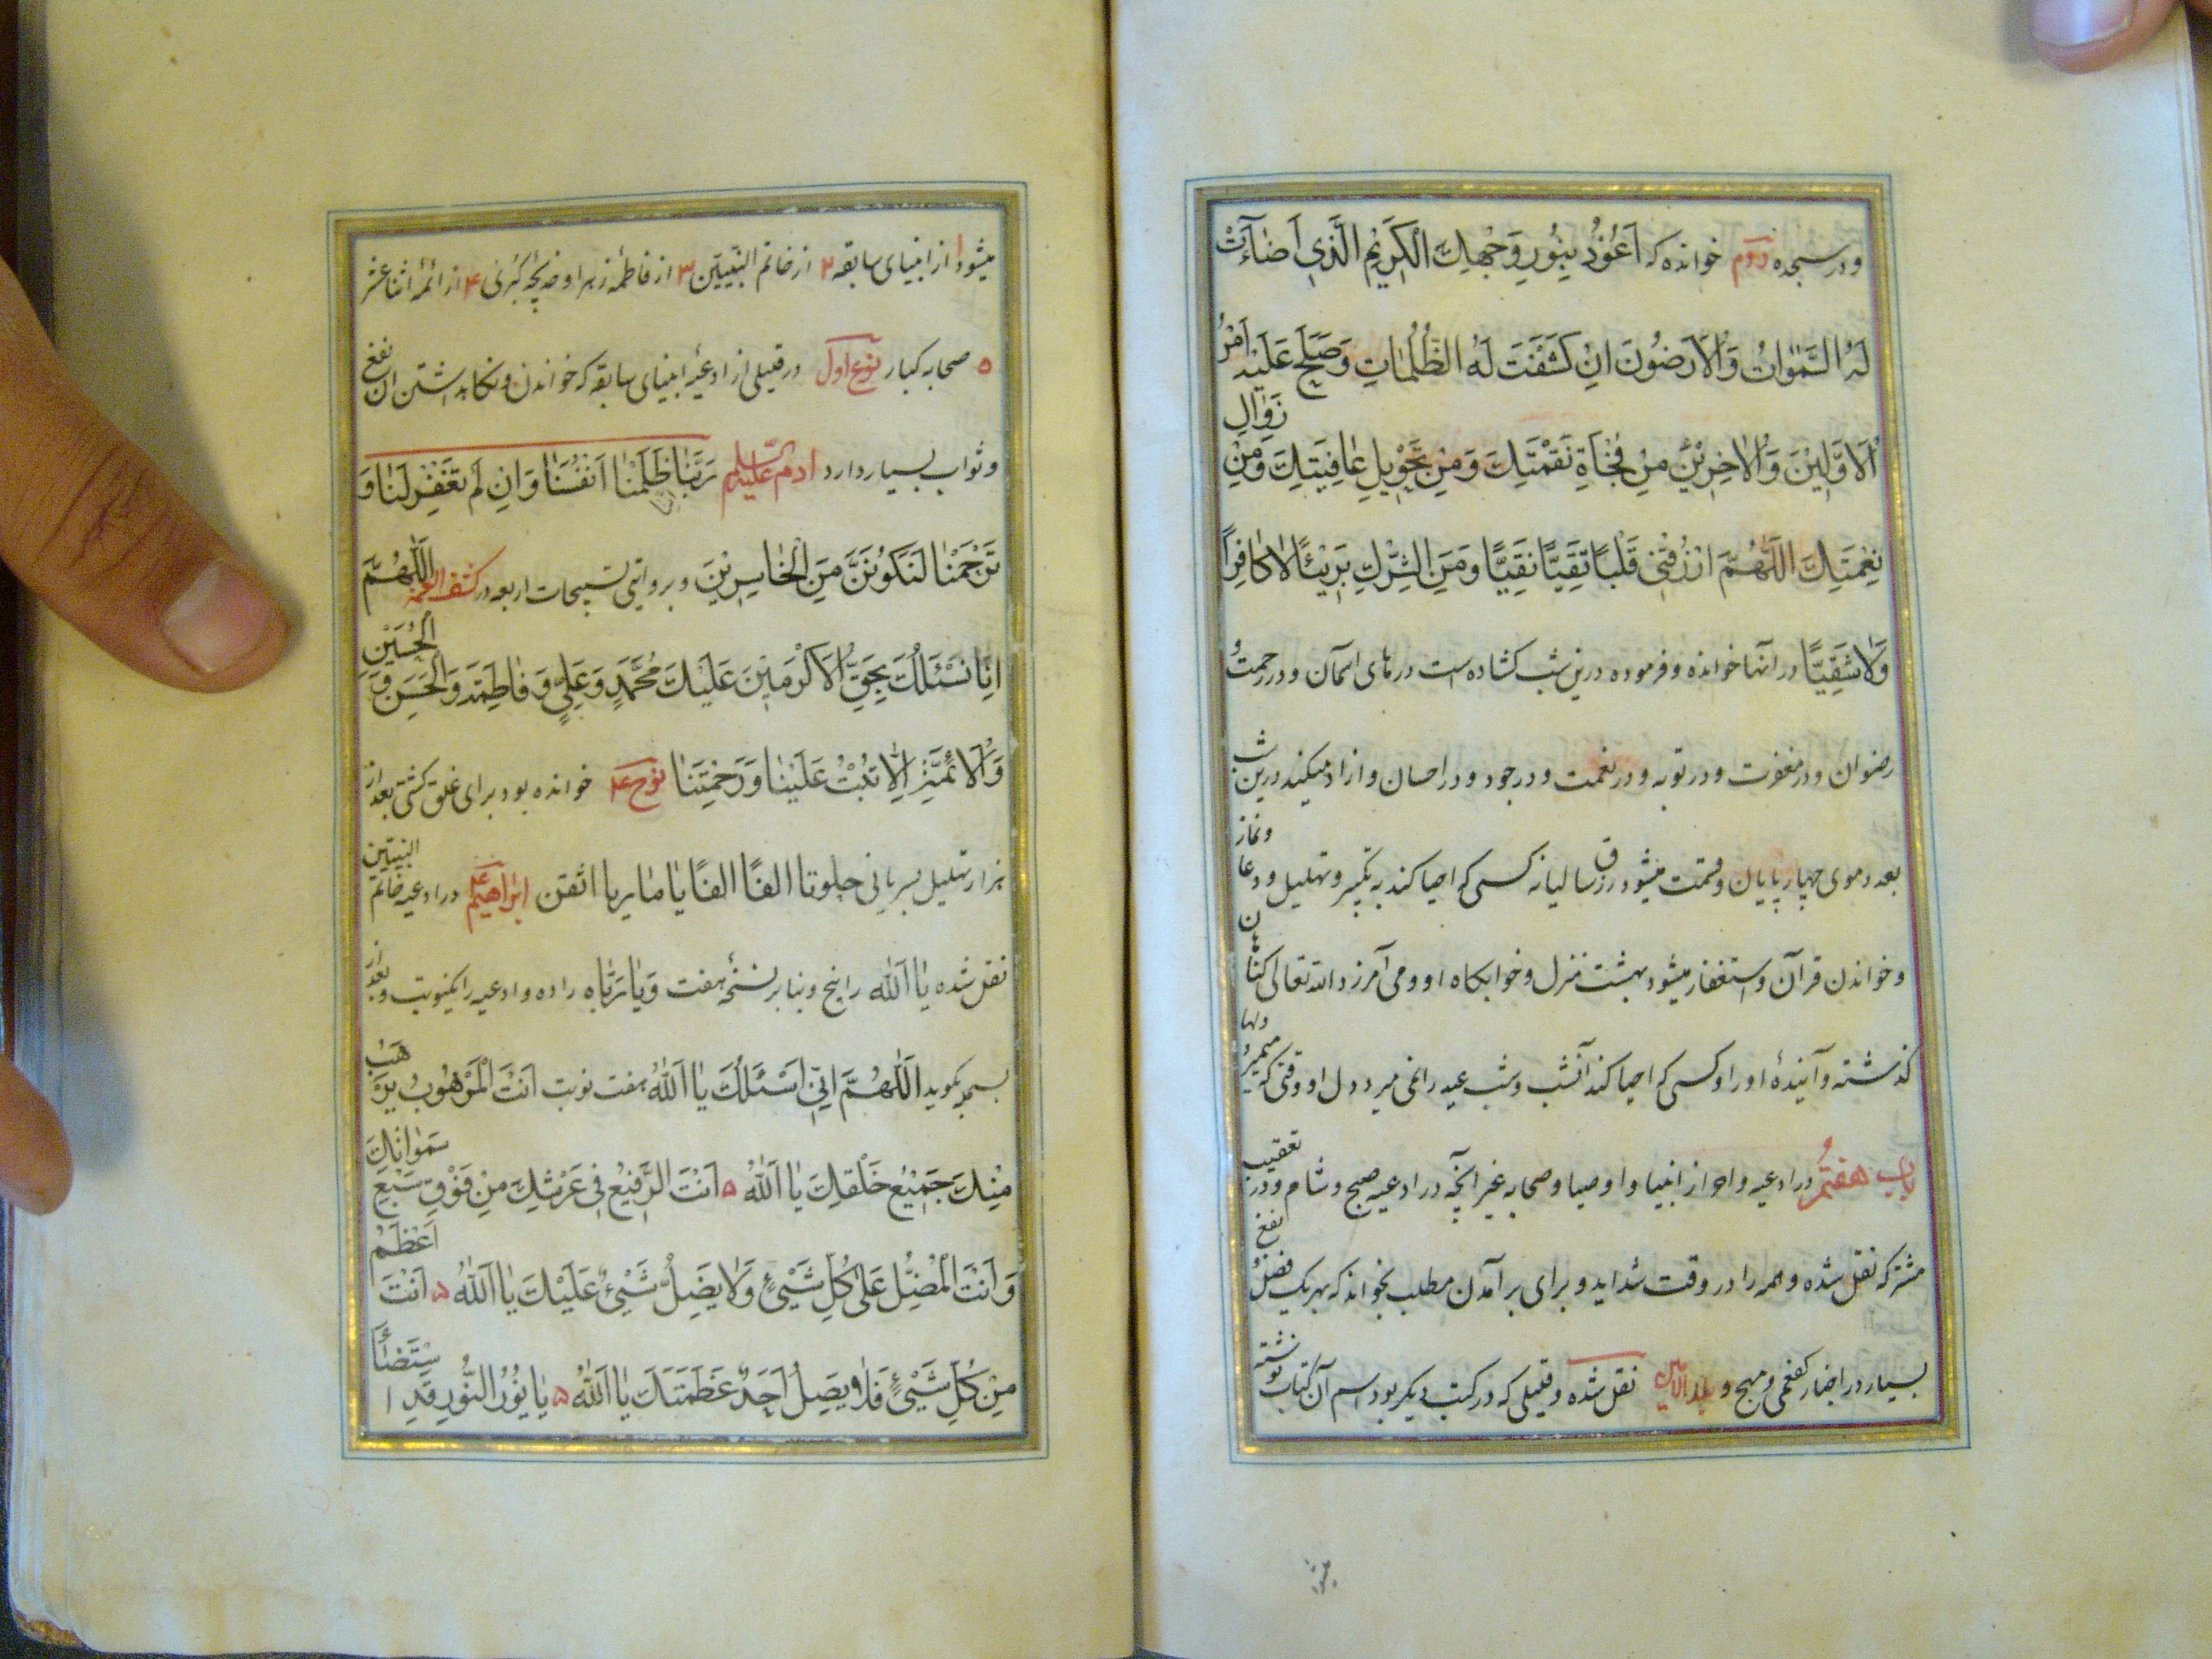 ودر سجده دوم خوانده که اَعُوذُ بِنُورِ وَجْهِكَ الْكَرِيمِ الَّذِي اَضٰاءَتْ
لَهُ السَّمٰوٰاتُ وَالْاَرَضُونَ انِ كَشَفَتْ لَهُ الظُّلُمٰاتِ وَصَلَحَ عَلَيْهِ اَمْرُ
اْلاَوَّلِينَ وَاْلاٰخِرِينَ مِنْ فَجْاَةِ نَقِمَتِكَ وَمِنْ تَحْوِيلِ عٰافِيَتِكَ وَمِنْ زَوٰالِ
نِعْمَتِكَ اَللّٰهُمَّ ارْزُقْنِي قَلْبًا تَقِيًّا نَقِيًّا وَمِنَ الشِّرْكِ بَرِيئًا لاٰ كٰافِرًا
وَلاٰ شَقِيًّا در انها خوانده و فرموده درین شب کشاده است درهای اسمان و در رحمت و
رضوان و در مغفرت و در توبه و در نعمت و در جود و در احسان و ازاد میکند درین شب
بعدد موی چهارپایان و قسمت میشود رزق سالیانه کسی که احیا کند به تکبیر و تهلیل و دعا و نماز
و خواندن قرآن و استغفار میشود بهشت منزل و خوابکاه او و می آمرزد الله تعالی کناهان
کذشته و آیندهٔ اورا و کسی که احیا کند آنشب و شب عید را نمی میرد دل او وقتی که میمیرد دلها
باب هفتم در ادعیه و احراز انبیا و اوصیا و صحابه غیر آنچه در ادعیه صبح و شام و در تعقیب
مشترکه نقل شده و همه را در وقت شداید و برای برآمدن مطلب بخواند که بهر یک فضل و نفع
بسیار در اخبار کفعمی و مهج و بلد الامین نقل شده و قلیلی که در کتب دیکر بود اسم آن کتاب نوشته
میشود ۱ از انبیای سابقه ۲ از خاتم النبیین ۳ از فاطمه زهرا و خدیجه کبری ۴ از ائمه اثنا عشر
۵ صحابه کبار نوع اول در قلیلی از ادعیه انبیای سابقه که خواندن و نکاهداشتن ان نفع
و ثواب بسیار دارد ادم علیه السلم رَبَّنٰا ظَلَمْنٰا اَنْفُسَنٰا وَاِنْ لَمْ تَغْفِرْ لَنٰا وَ
تَرْحَمْنٰا لَنَكُونَنَّ مِنَ الْخٰاسِرِينَ و بروایتی تسبیحات اربعه در کشف الغمه اَللّٰهُمَّ
اِنّٰا نَسْئَلُكَ بِحَقِّ اْلاَكْرَمِينَ عَلَيْكَ مُحَمَّدٍ وَعَلِيٍّ وَفٰاطِمَةَ وَالْحَسَنِ وَ الْحُسَيْنِ
وَاْلاَئِمَّةِ اِلاّٰ تُبْتَ عَلَيْنٰا وَرَحِمْتَنٰا نوح ع خوانده بود برای غلق کشتی بعد از
هزار تهلیل بسریانی حلوتا الفًا الفًا یا ماریا اتقن ابراهیم ع در ادعیه خاتم النبیین
نقل شده یٰا اَللّٰه را پنج و بنابر نسخهٔ هفت وَیٰا رَبّٰاه را ده و ادعیه را یکنوبت و بعد از
بسمله بکوید اَللّٰهُمَّ اِنِّي اَسْئَلُكَ يٰا اَللّٰهُ هفت نوبت اَنْتَ الْمَرْهُوبُ يَرْهَبُ
مِنْكَ جَمِيعُ خَلْقِكَ يٰا اَللّٰهُ ۵ اَنْتَ الرَّفِيعُ فِي عَرْشِكَ مِنْ فَوْقِ سَبْعِ سَمٰوٰاتِكَ
وَاَنْتَ الْمُظِلُّ عَلٰى كُلِّ شَيْئٍ وَلاٰ يُظِلُّ شَيْئٌ عَلَيْكَ يٰا اَللّٰهُ ۵ اَنْتَ اَعْظَمُ
مِنْ كُلِّ شَيْئٍ فَلاٰ يَصِلُ اَحَدٌ عَظَمَتَكَ يٰا اَللّٰهُ ۵ يٰا نُورَ النُّورِ قَدِ اسْتَضٰاءَ